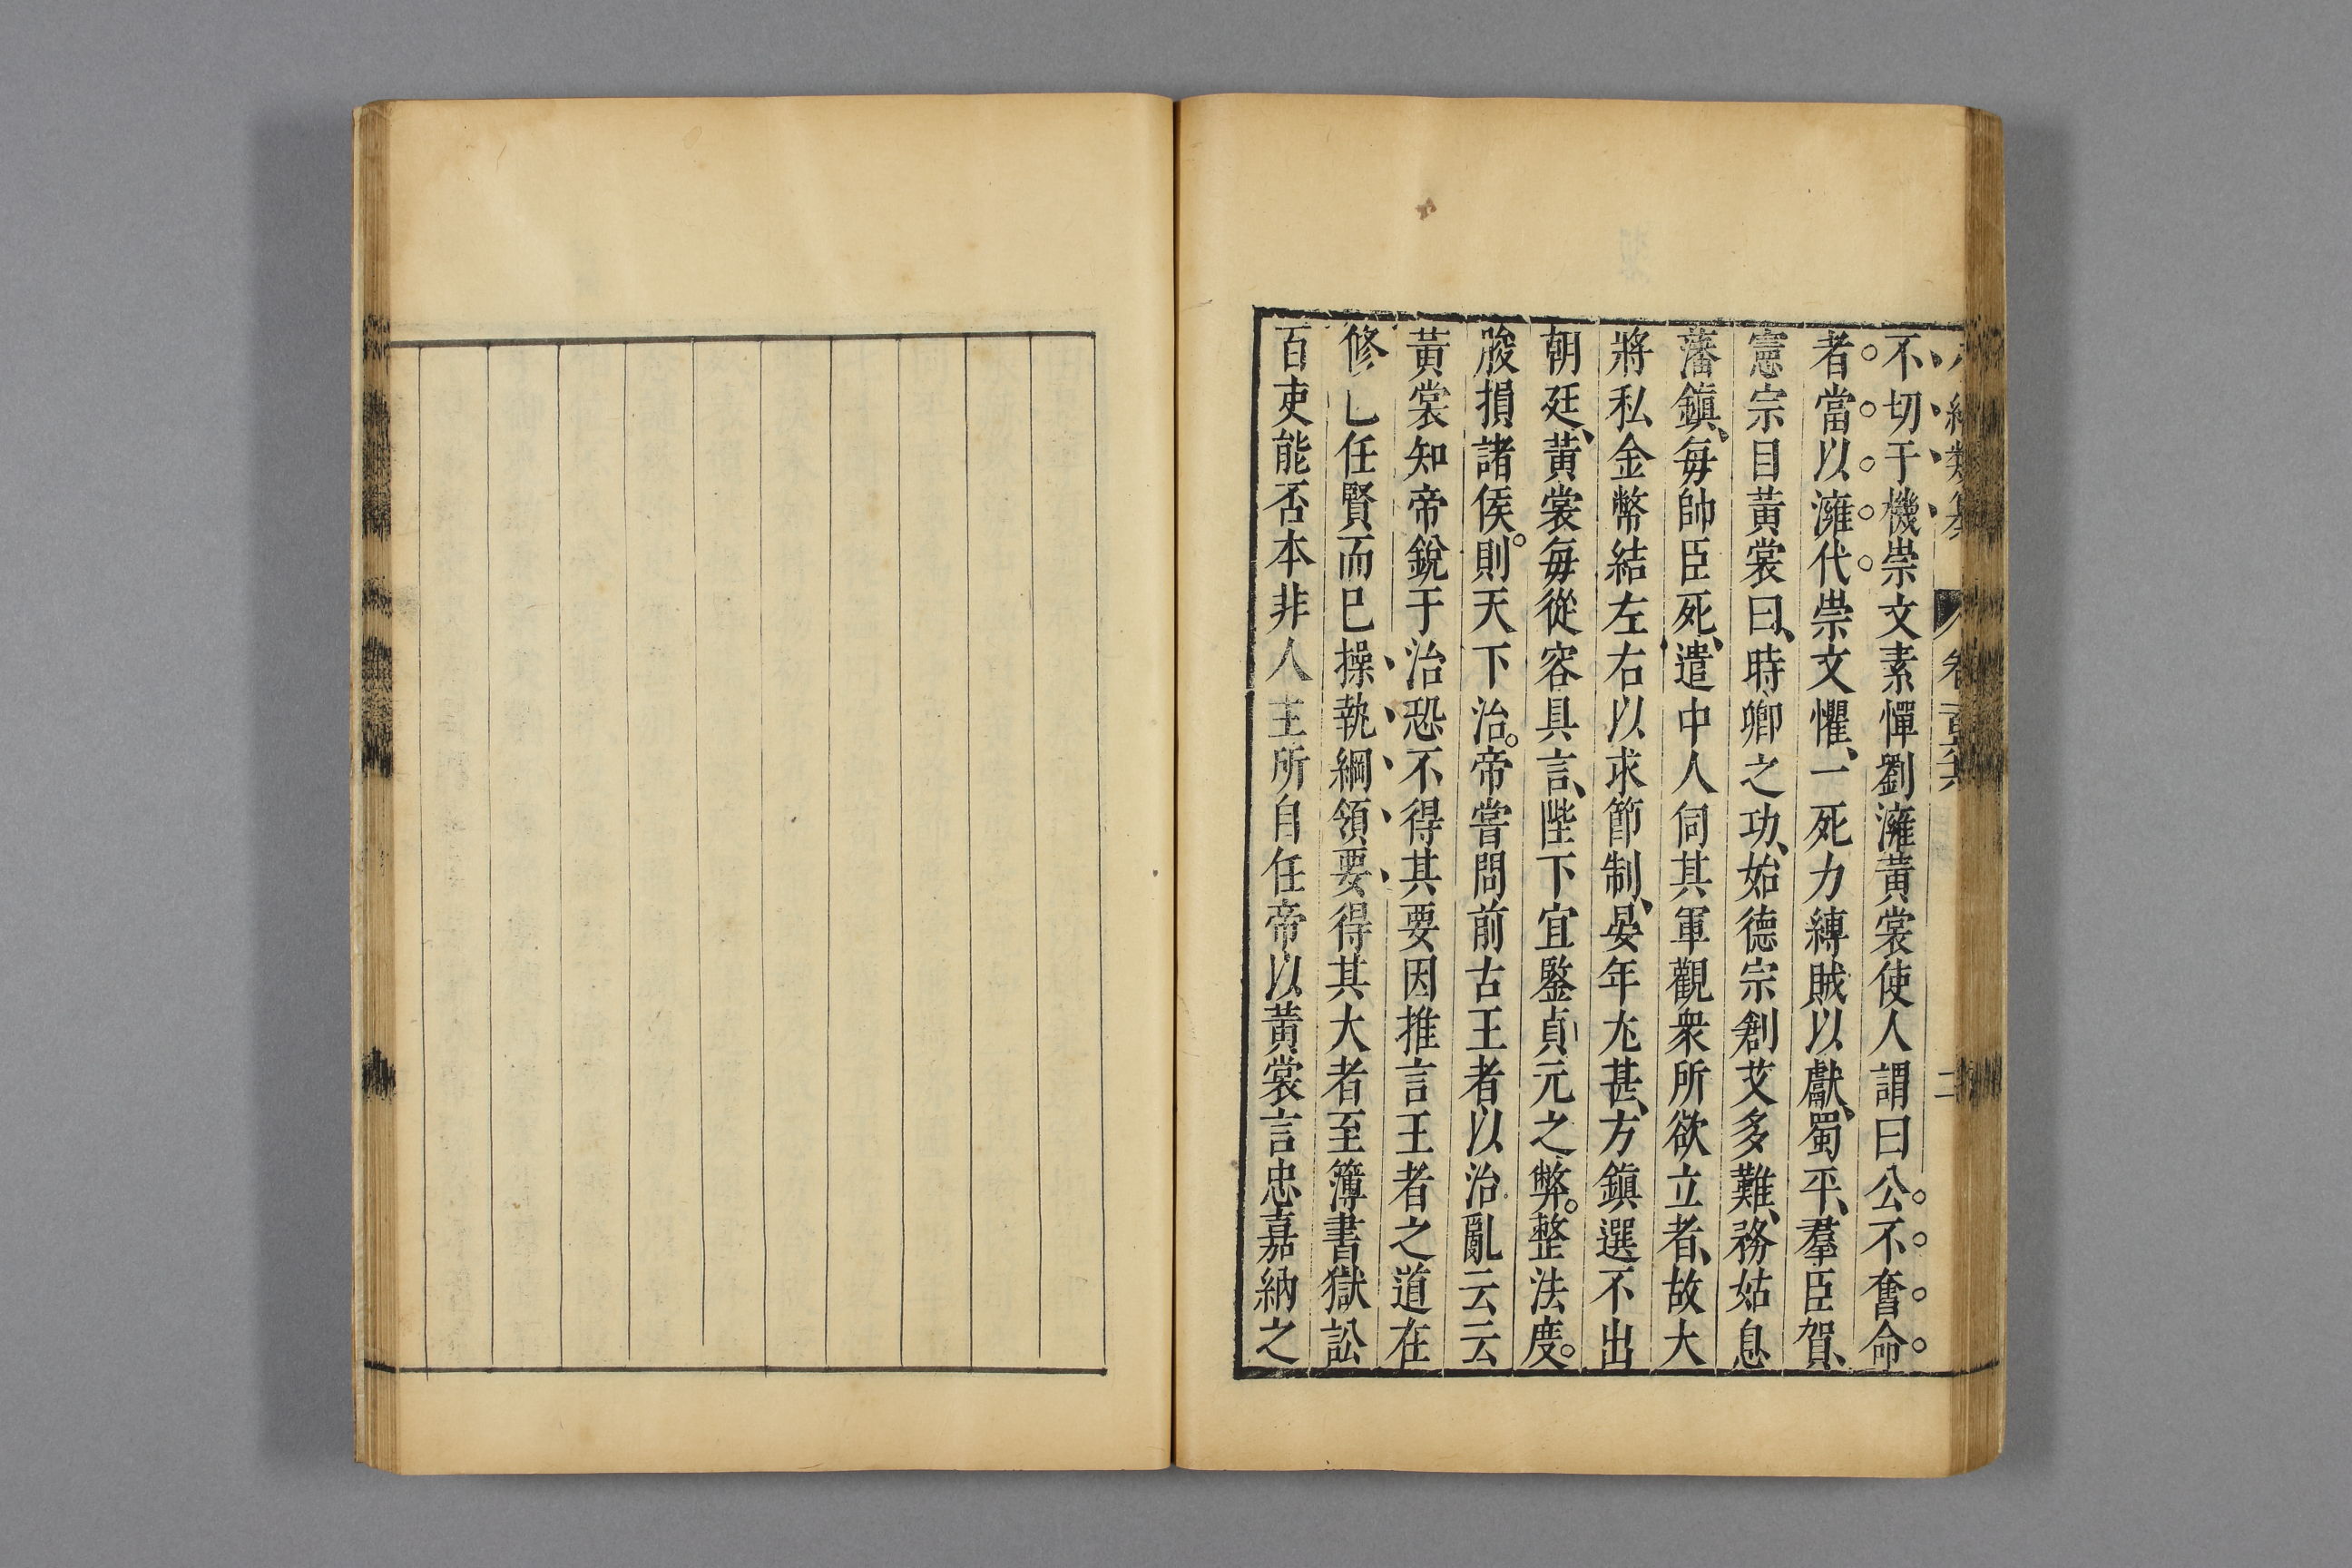 不切于機崇文素憚劉澭黃裳使人謂曰公。不奮命
者當以澭代崇文懼、一死力縛賊以獻、蜀平、羣臣賀、
憲宗目黃裳曰、時卿之功、始德宗創艾多難、務姑息
藩鎮、每帥臣死、遣中人伺其軍觀衆所欲立者、故大
將私金幣結左右以求節制、晏年尤甚、方鎮選不出
朝廷、黃裳每從容具言、陛下宜鑒貞元之弊。整法度。
朘損諸侯。則天下治。帝嘗問前古王者以治亂云云
黃裳知帝銳于治恐不得其要因推言王者之道在
修已任賢而已操執綱領要得其大者至簿書獄訟
百吏能否本非人主所自任帝以黃裳言忠嘉納之